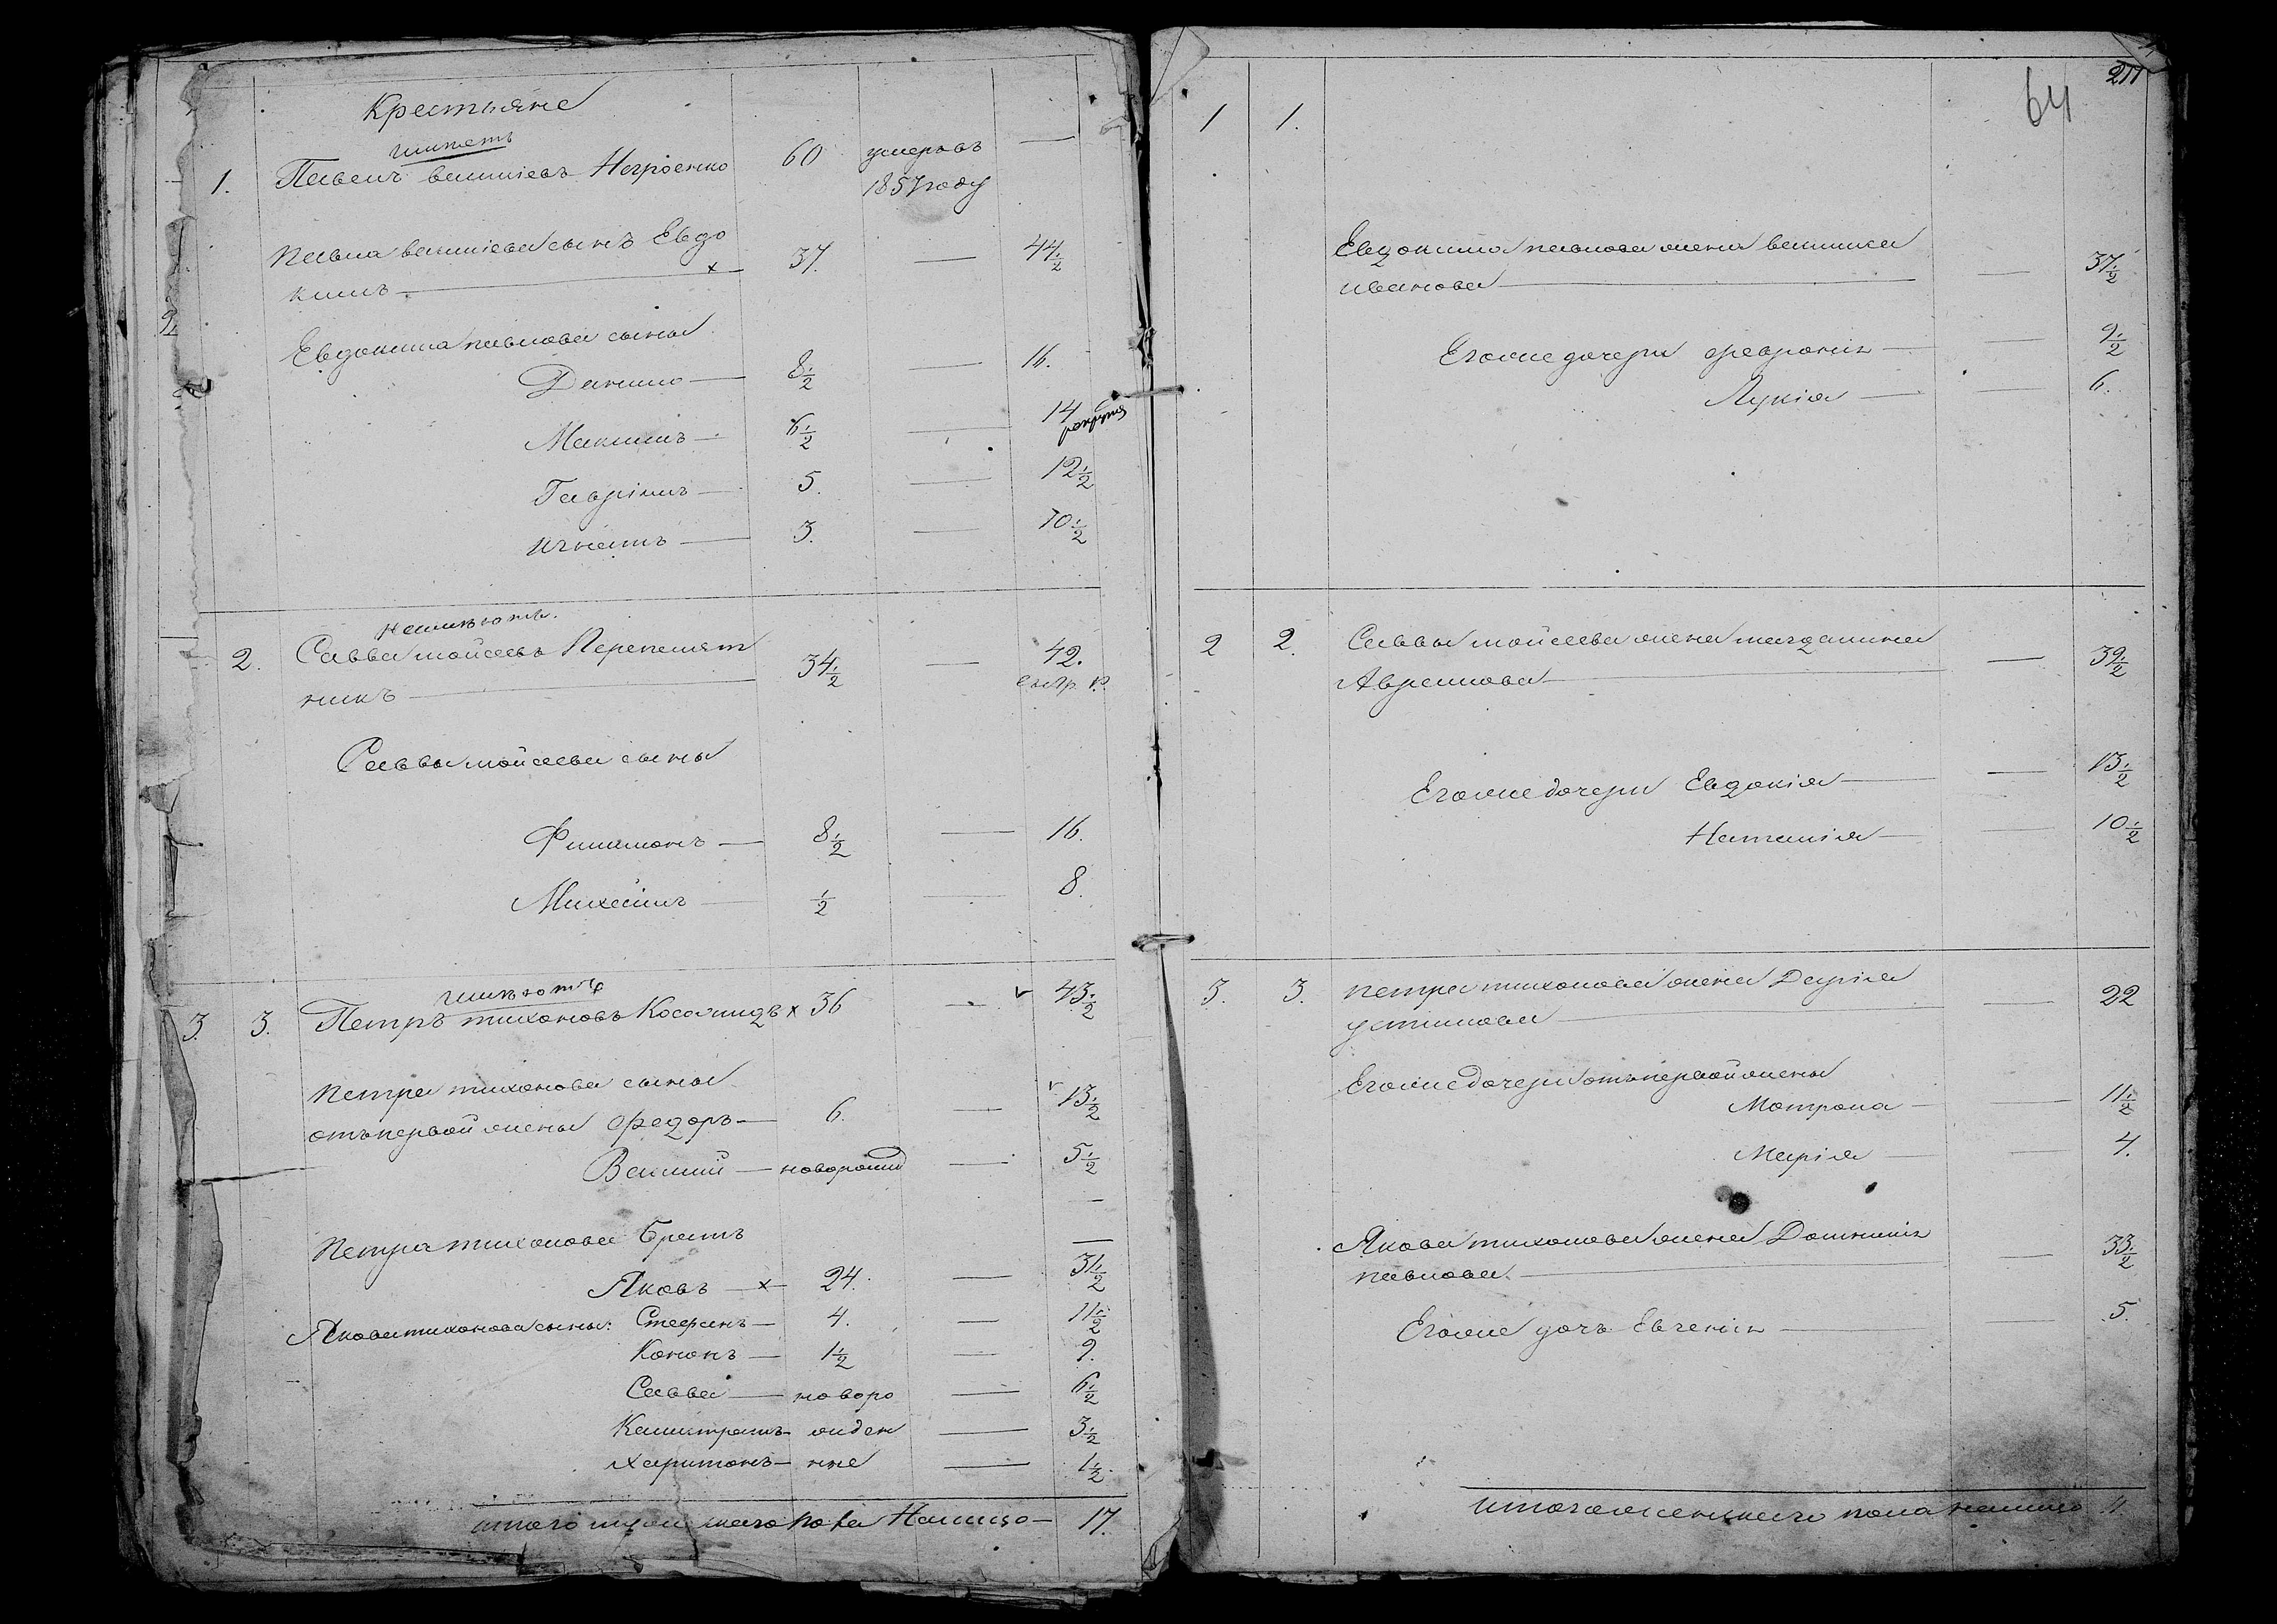 Крестьяне
1. Павелъ Василіевъ 60 умеръ въ —
1857 году
Павла Василіева сынъ Евдо 37. — 44 1/2
кимъ
Евдокима Павлова сыны
Данило — 8 1/2 — 16.
Максимъ — 6 1/2 — 14
Гавріилъ — 5. — 12 1/2
Игнатъ — 3. — 10 1/2
2. Савва Мойсеевъ Перепелят 34 1/2 — 42.
никъ
Саввы Мойсеева сыны
Филимонъ — 8 1/2 — 16.
Михаилъ — 1/2 — 8.
3. 3. Петръ Тихоновъ x 36 — 43 1/2
Петра Тихонова сыны
отъ первой жены Федоръ — 6. — 13 1/2
Василій — новорожд — 5 1/2
Петра Тихонова братъ
Яковъ — x — 24. — 31 1/2
Якова Тихонова сыны: Стефанъ — 4. — 11 1/2
Кононъ — 1 1/2 — 9.
Савва — новоро — 6 1/2
Калистратъ — жден — 3 1/2
Харитонъ — ные — 1 1/2.
Итого мужескаго пола Налицо — 17.
211
64
1 1.
Евдокима Павлова жена Василиса — 37 1/2
Иванова
Его же дочери Февронія — — 9 1/2
Лукія — — 6.
2 2. Саввы Мойсеева жена Магдалина — 39 1/2
Аврамова
Его же дочери Евдокія — — 13 1/2
Наталія — — 10 1/2
3. 3. Петра Тихонова жена Дарія — 22
Устинова
Его же дочери отъ первой жены
Мотрона — — 11 1/2
Марія — — 4.
Якова Тихонова жена Домникія — 33 1/2
Павлова.
Его же дочь Евгенія — 5.
Итого женскаго пола налицо 11.